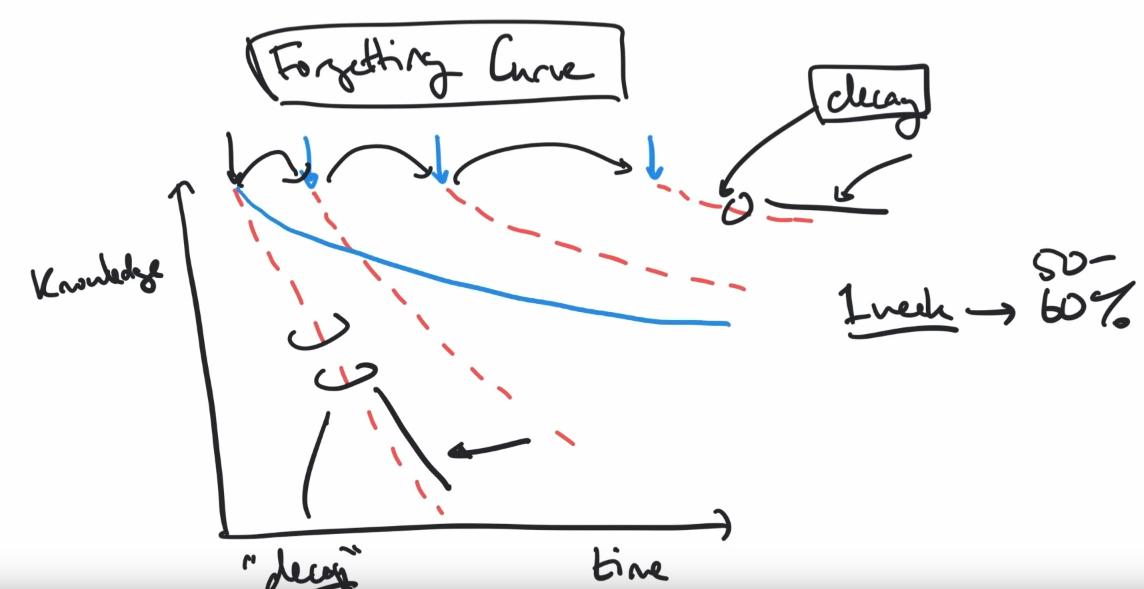 Forgetting Curve
decay
Knowledge
50-
1 week → 60%
"decay"
time